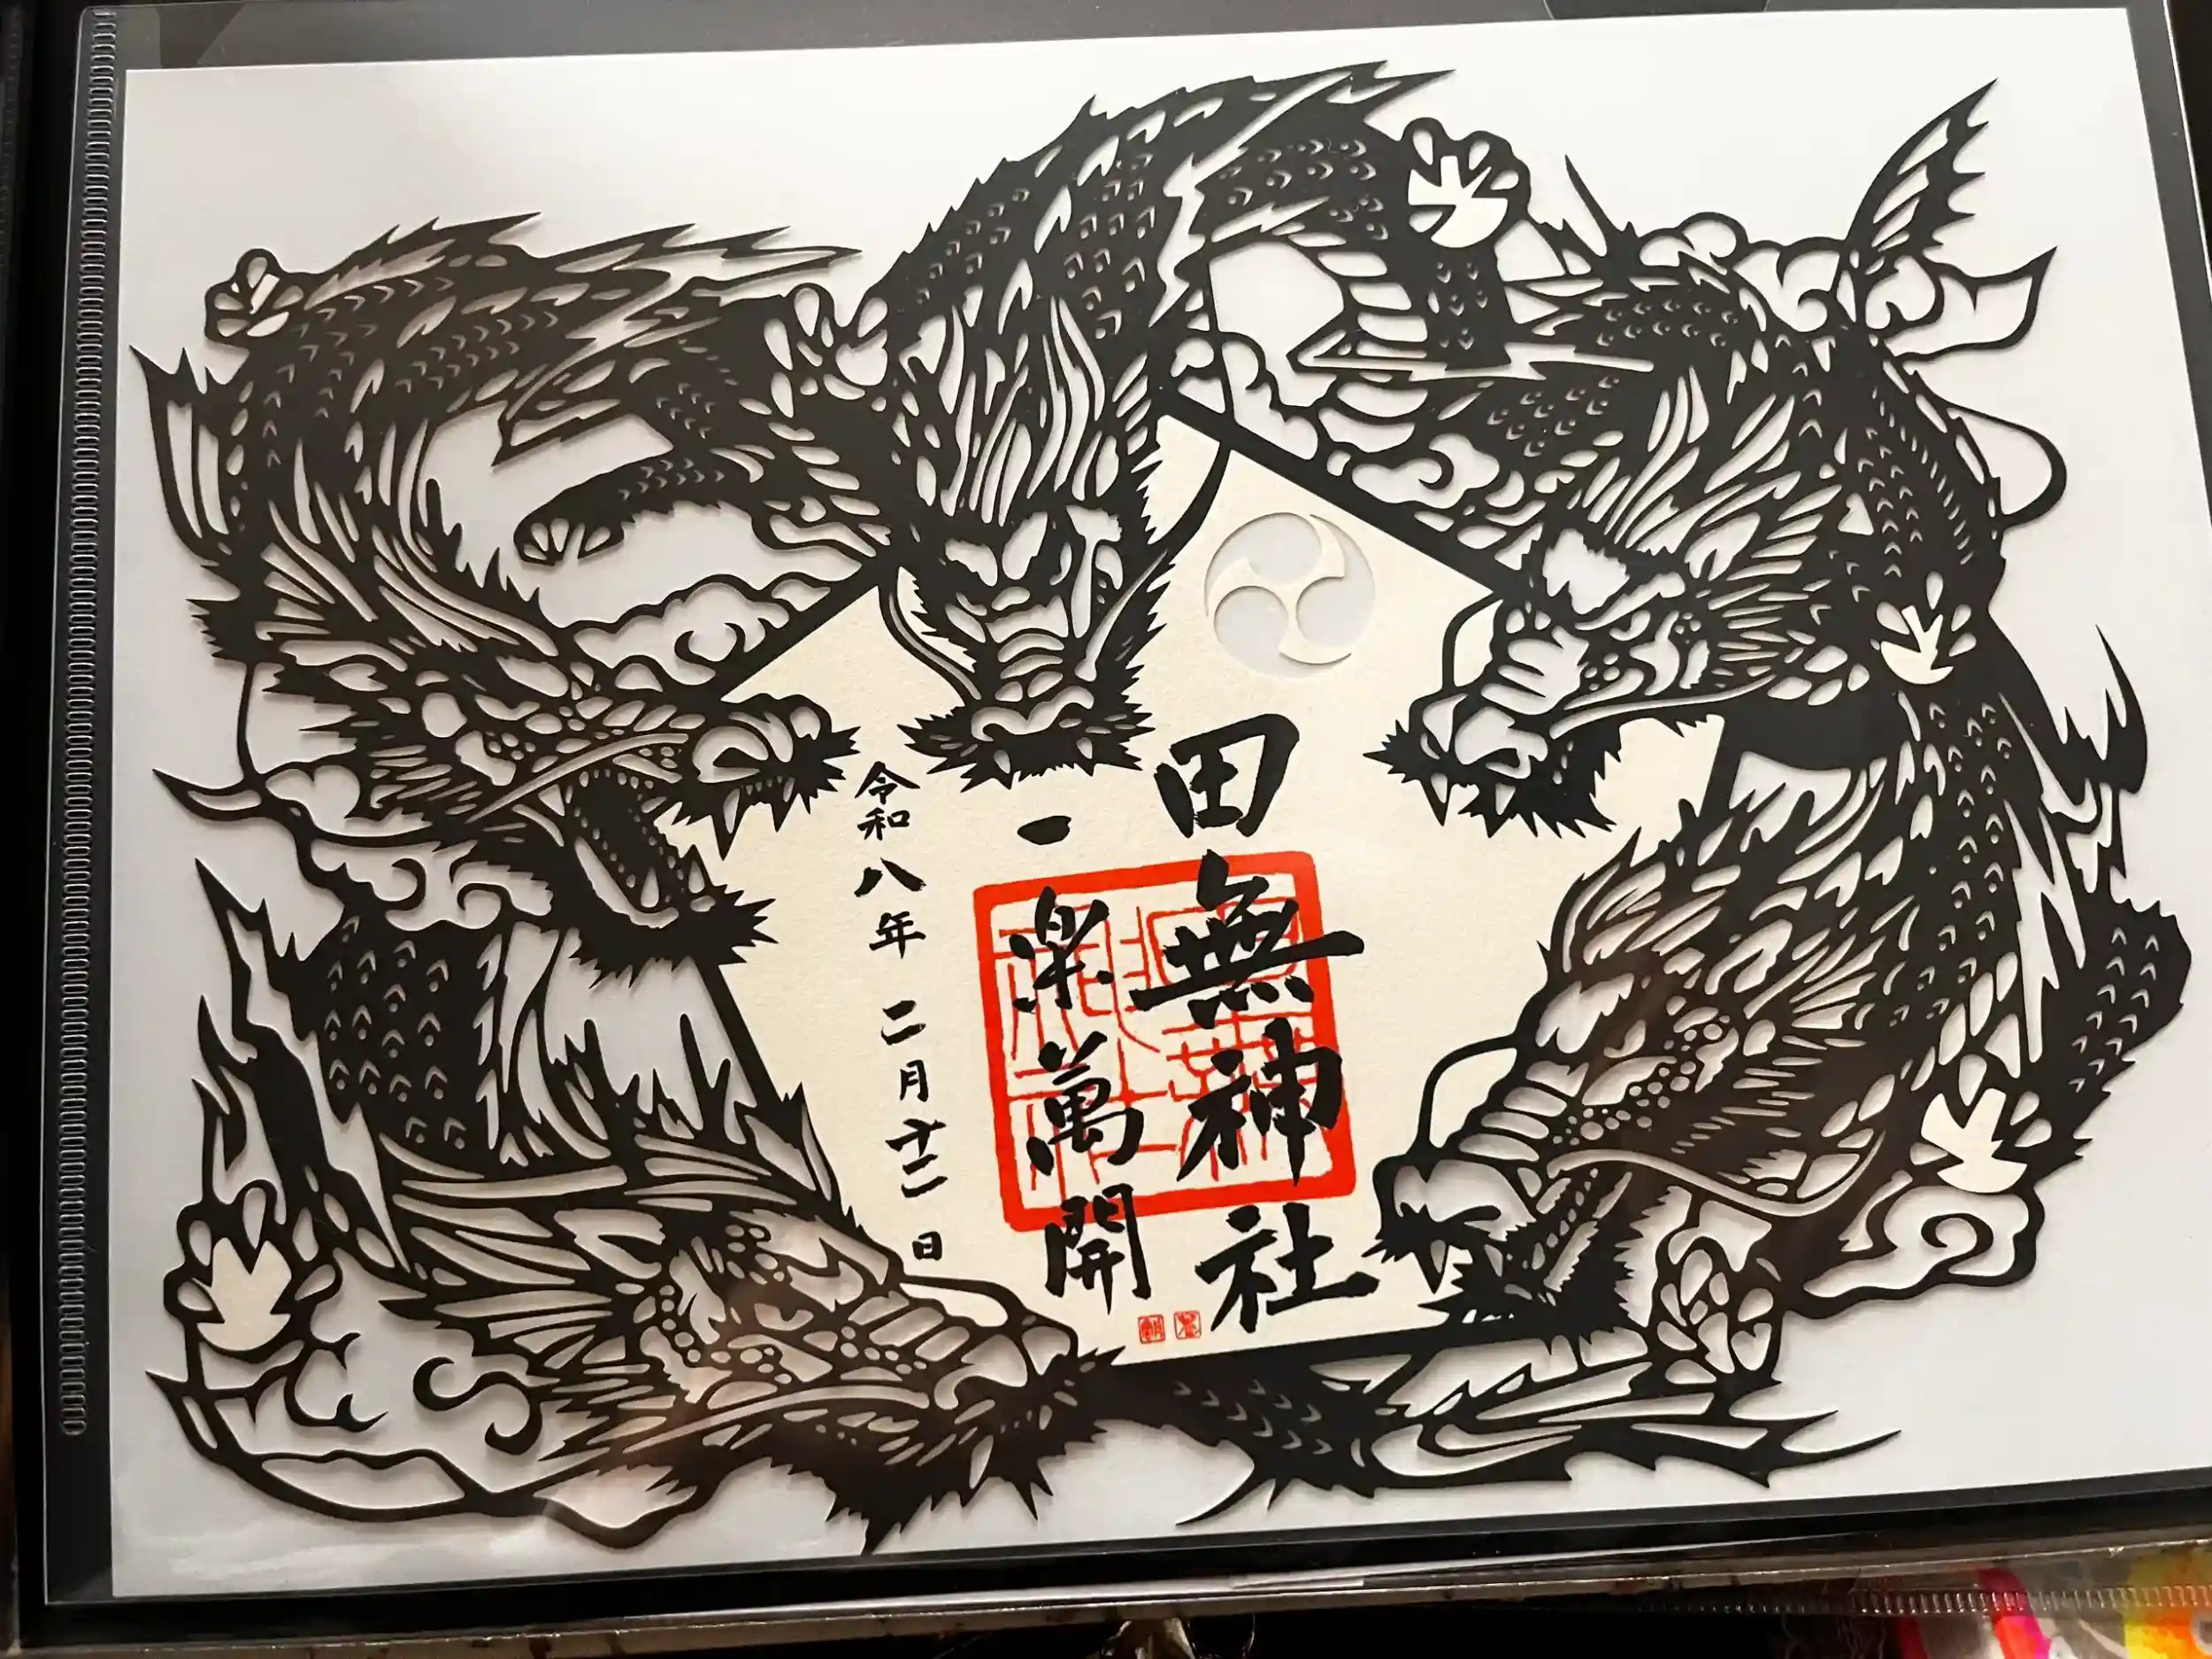 田無神社
一粟萬開
令和八年二月十二日